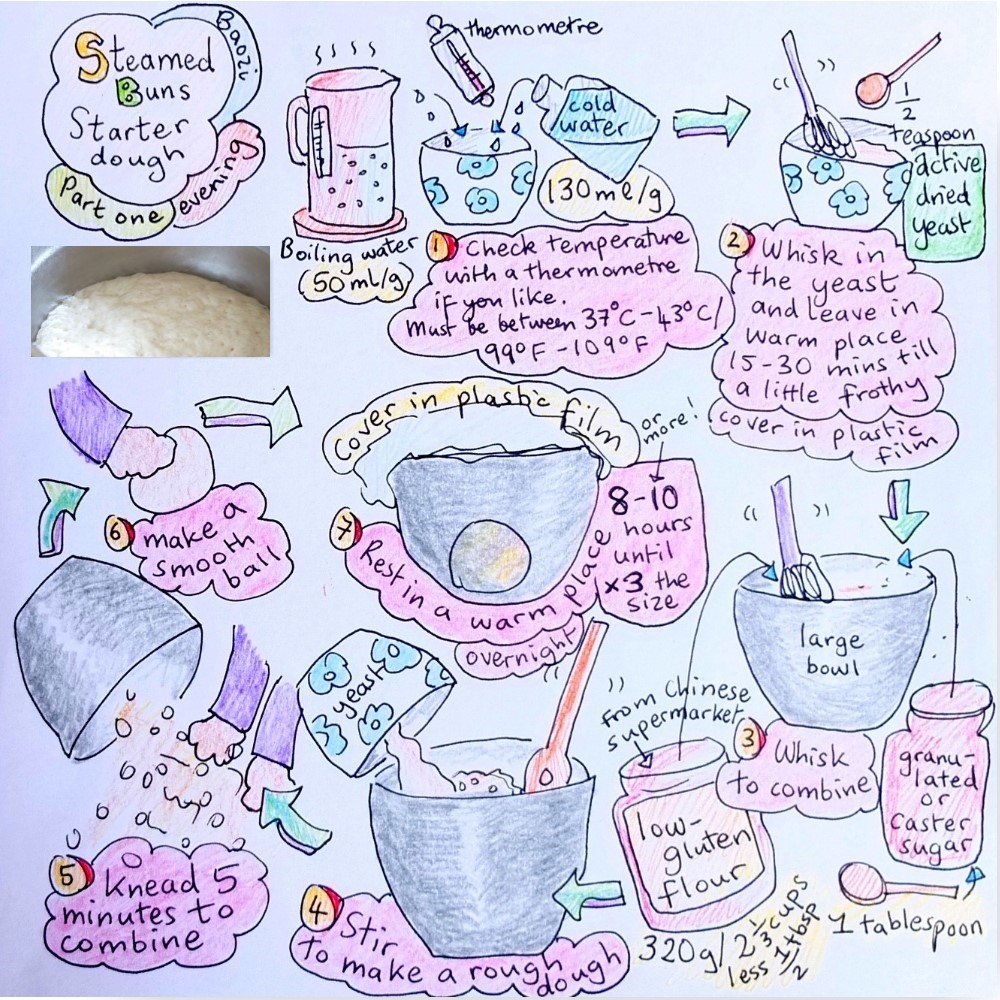 Steamed
Buns
Baozi
Starter
dough
Part one
evening
thermometre
cold
water
130ml/g
Boiling water
50ml/g
1 Check temperature
with a thermometre
if you like.
Must be between 37°C-43°C/
99°F-109°F
1/2
teaspoon
active
dried
yeast
2 Whisk in
the yeast
and leave in
warm place
15-30 mins till
a little frothy
cover in plastic
film
large
bowl
3 Whisk
to combine
from Chinese
supermarket
low-
gluten
flour
320g/2 1/3 cups
less 1/2 tbsp
granu-
lated
or
caster
sugar
1 tablespoon
yeast
4 Stir
to make a rough
dough
5 knead 5
minutes to
combine
6 make a
smooth
ball
Cover in plastic film
7 Rest in a warm place
overnight
or
more!
8-10
hours
until
x3 the
size